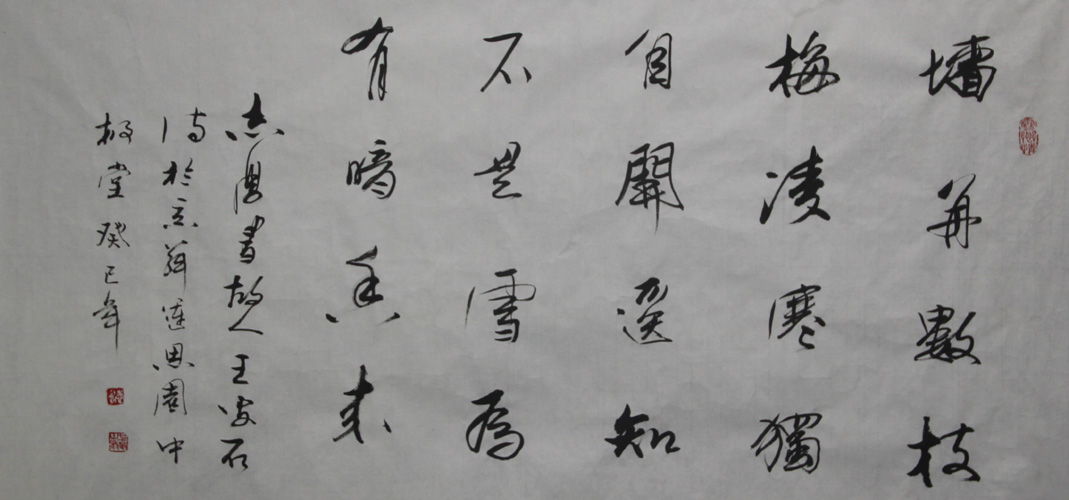 墻角數枝
梅凌寒獨
自開遥知
不是雪為
有暗香来
志書故人王安石
诗於京思園中
堂癸巳年